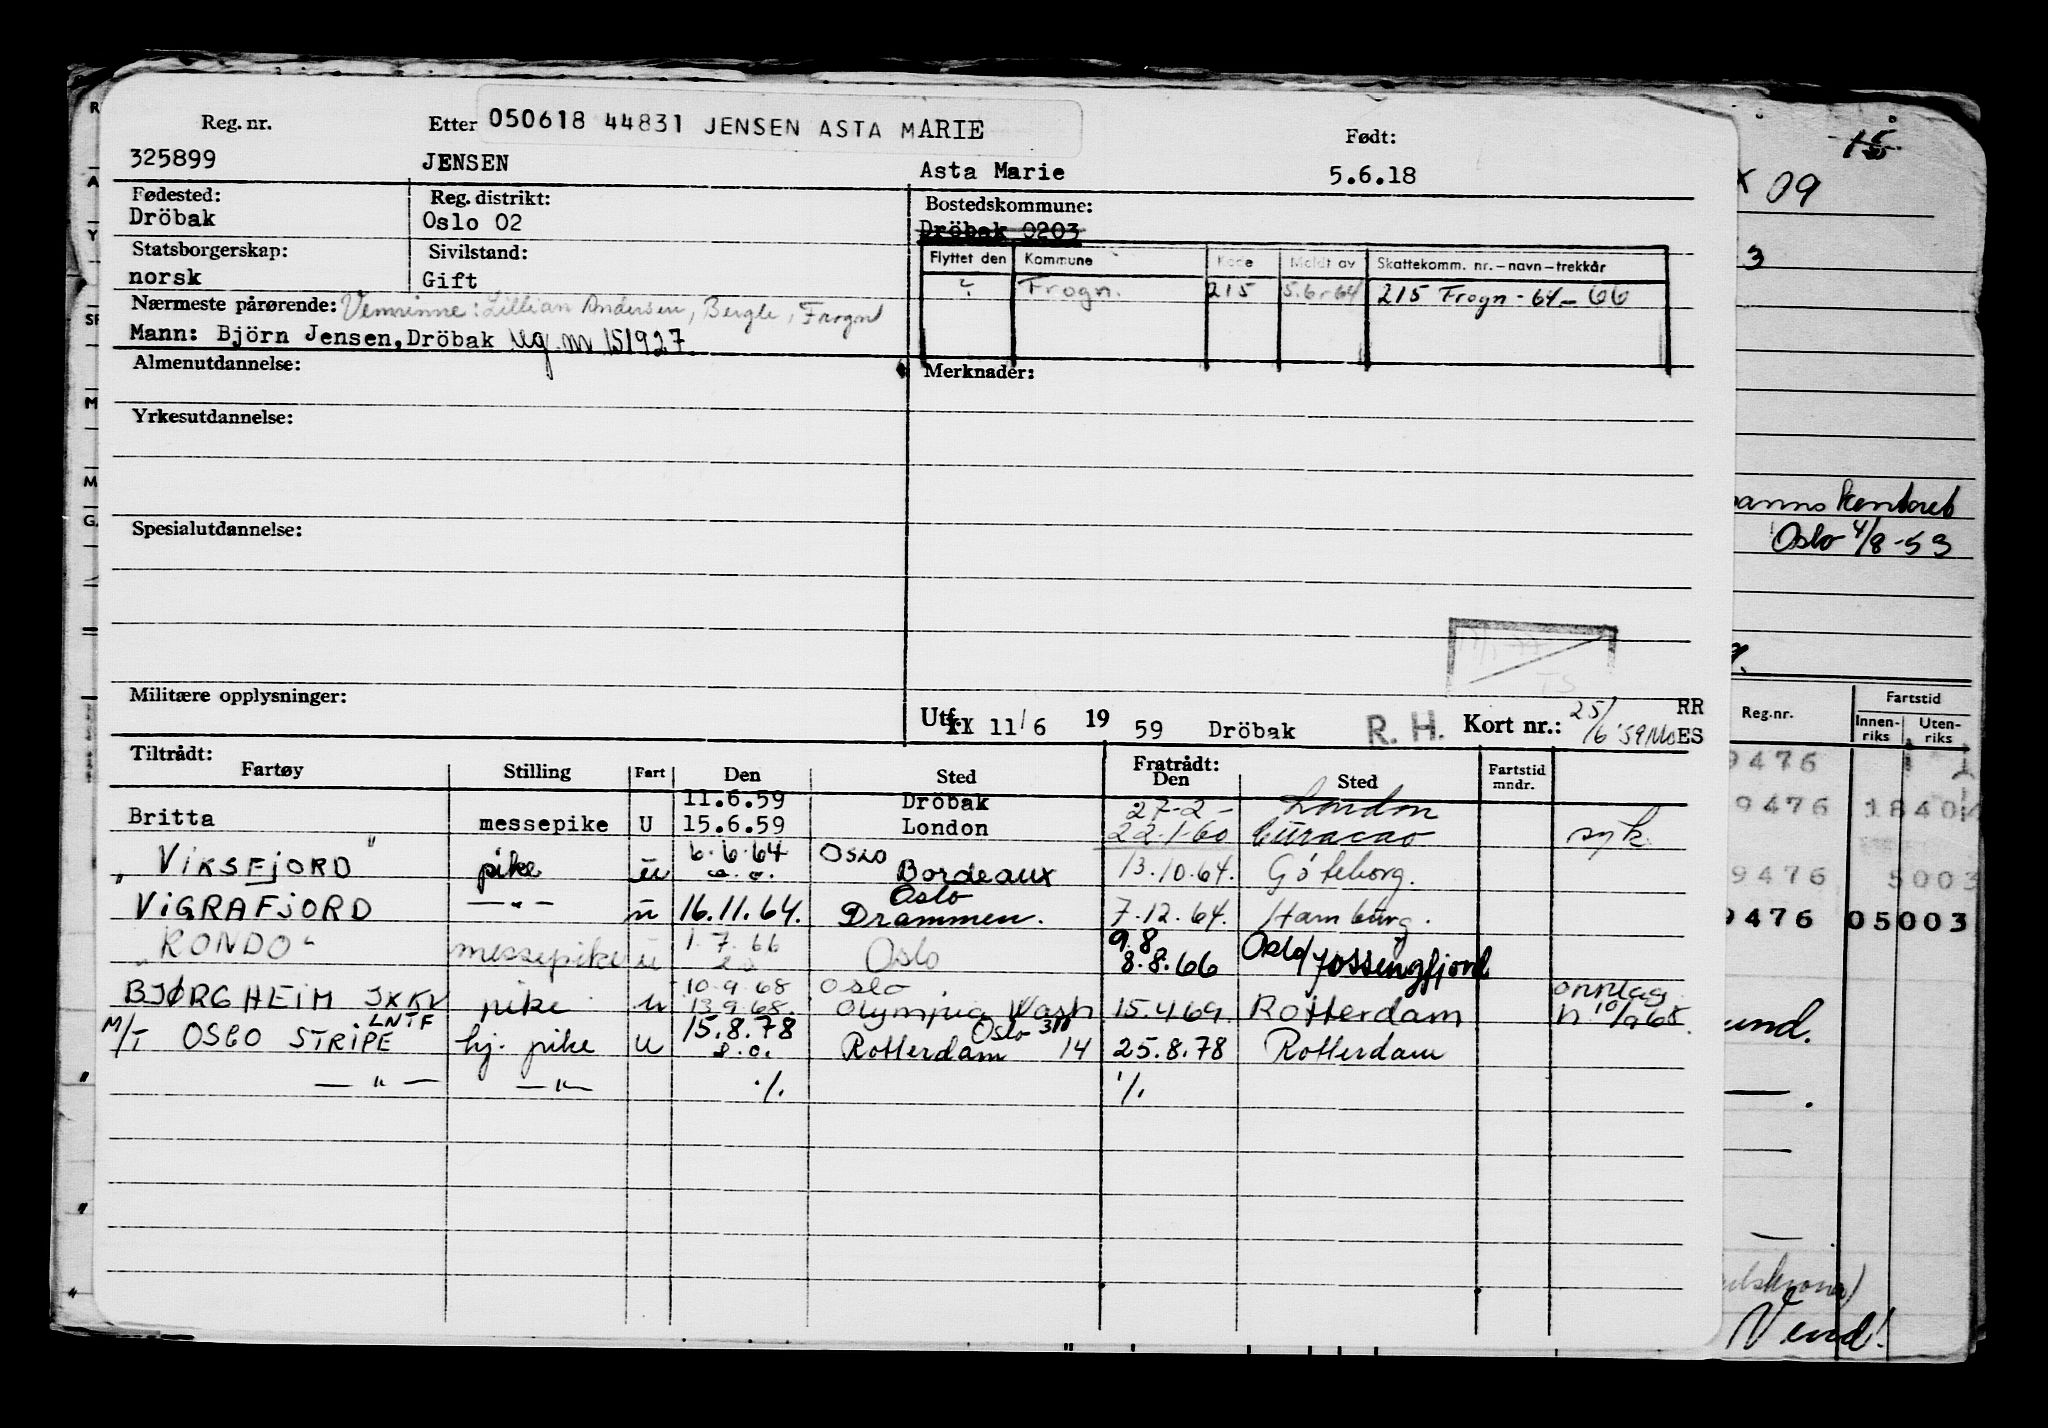 Reg. nr. Etter 050618 44831 JENSEN ASTA MARIE Født:
325899 JENSEN Asta Marie 5.6.18
Fødested: Reg. distrikt: Bostedskommune:
Dröbak Oslo 02 Dröbak 0203
Statsborgerskap: Sivilstand: Flyttet den Kommune Kode Meldt av Skattekomm. nr.–navn–trekkår
norsk Gift ? Frogn. 215 5.6-64 215 Frogn - 64 - 66
Nærmeste pårørende: Venninne: Lillian Andersen, Bergle, Frogn
Mann: Björn Jensen, Dröbak reg. nr 151927
Almenutdannelse: Merknader:
Yrkesutdannelse:
Spesialutdannelse:
Militære opplysninger:
Utf. 11/6 1959 Dröbak R. H. Kort nr.: 25/6'59 RR ES
Tiltrådt: Fratrådt:
Fartøy Stilling Fart Den Sted Den Sted Fartstid mndr.
11.6.59 Dröbak 27-2- London
Britta messepike U 15.6.59 London 22.1.60 Curacao syk.
6.6.64 Oslo
"VIKSFJORD" pike u s.d. Bordeaux 13.10.64. Göteborg.
Oslo
VIGRAFJORD —"— u 16.11.64. Drammen. 7.12.64. Hamburg.
1.7.66 9.8
"RONDO" messepike u Oslo 8.8.66 Oslo/Jossingfjord
10.9.68 Oslo omtlag
BJØRGHEIM JXKV pike u 13.9.68. Olympia Wash 15.4.69. Rotterdam n 10/9 68.
LNTF 15.8.78 Oslo 311
M/T OSLO STRIPE hj. pike u s.d. Rotterdam 14 25.8.78 Rotterdam
—"— —"— ./. ./.
09
3
Oslo 4/8-53
Reg.nr. Fartstid
Innenriks Utenriks
9476
9476 18404
9476 5003
9476 05003
Vend!